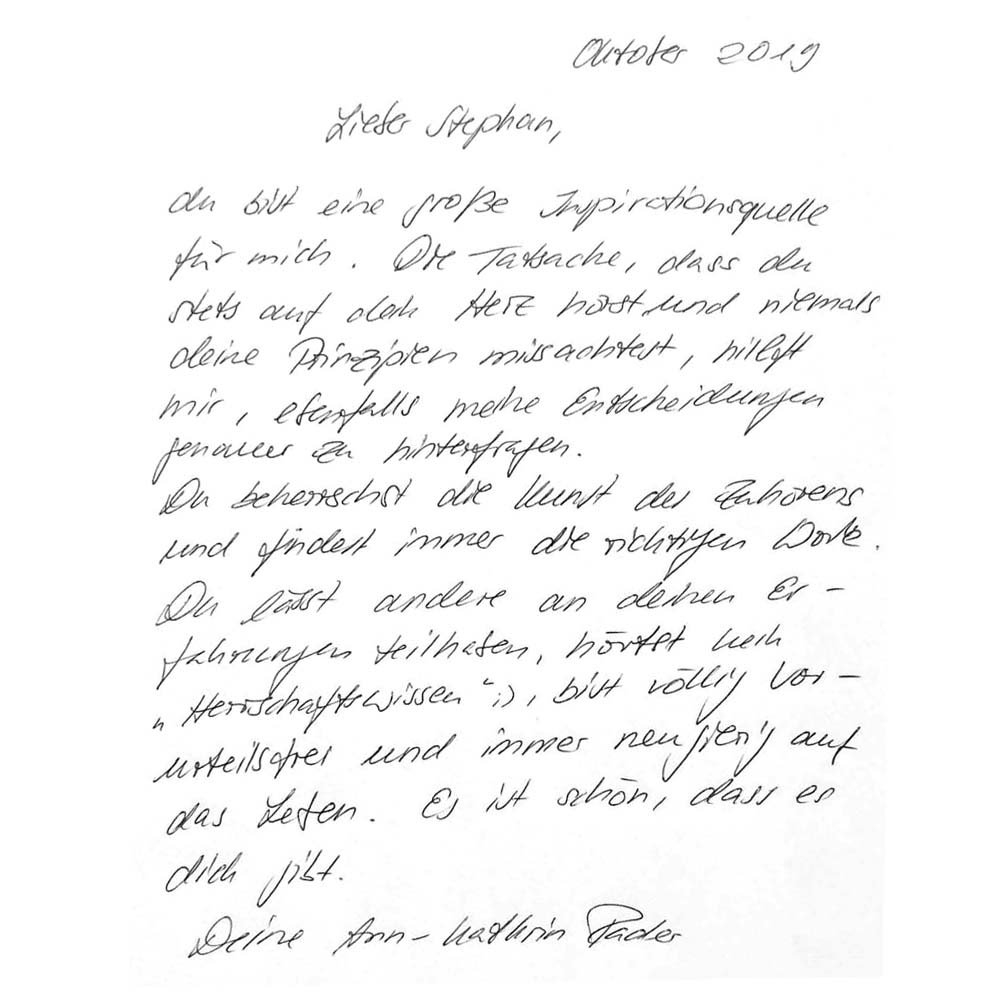 Oktober 2019
Lieber Stephan,
du bist eine große Inspirationsquelle
für mich. Die Tatsache, dass du
stets auf dein Herz hörst und niemals
deine Prinzipien missachtest, hilft
mir, ebenfalls meine Entscheidungen
genauer zu hinterfragen.
Du beherrschst die Kunst des Zuhörens
und findest immer die richtigen Worte.
Du lässt andere an deinen Er-
fahrungen teilhaben, hortest kein
„Herrschaftswissen“ ;), bist völlig vor-
urteilsfrei und immer neugierig auf
das Leben. Es ist schön, dass es
dich gibt.
Deine Ann-Kathrin Pader